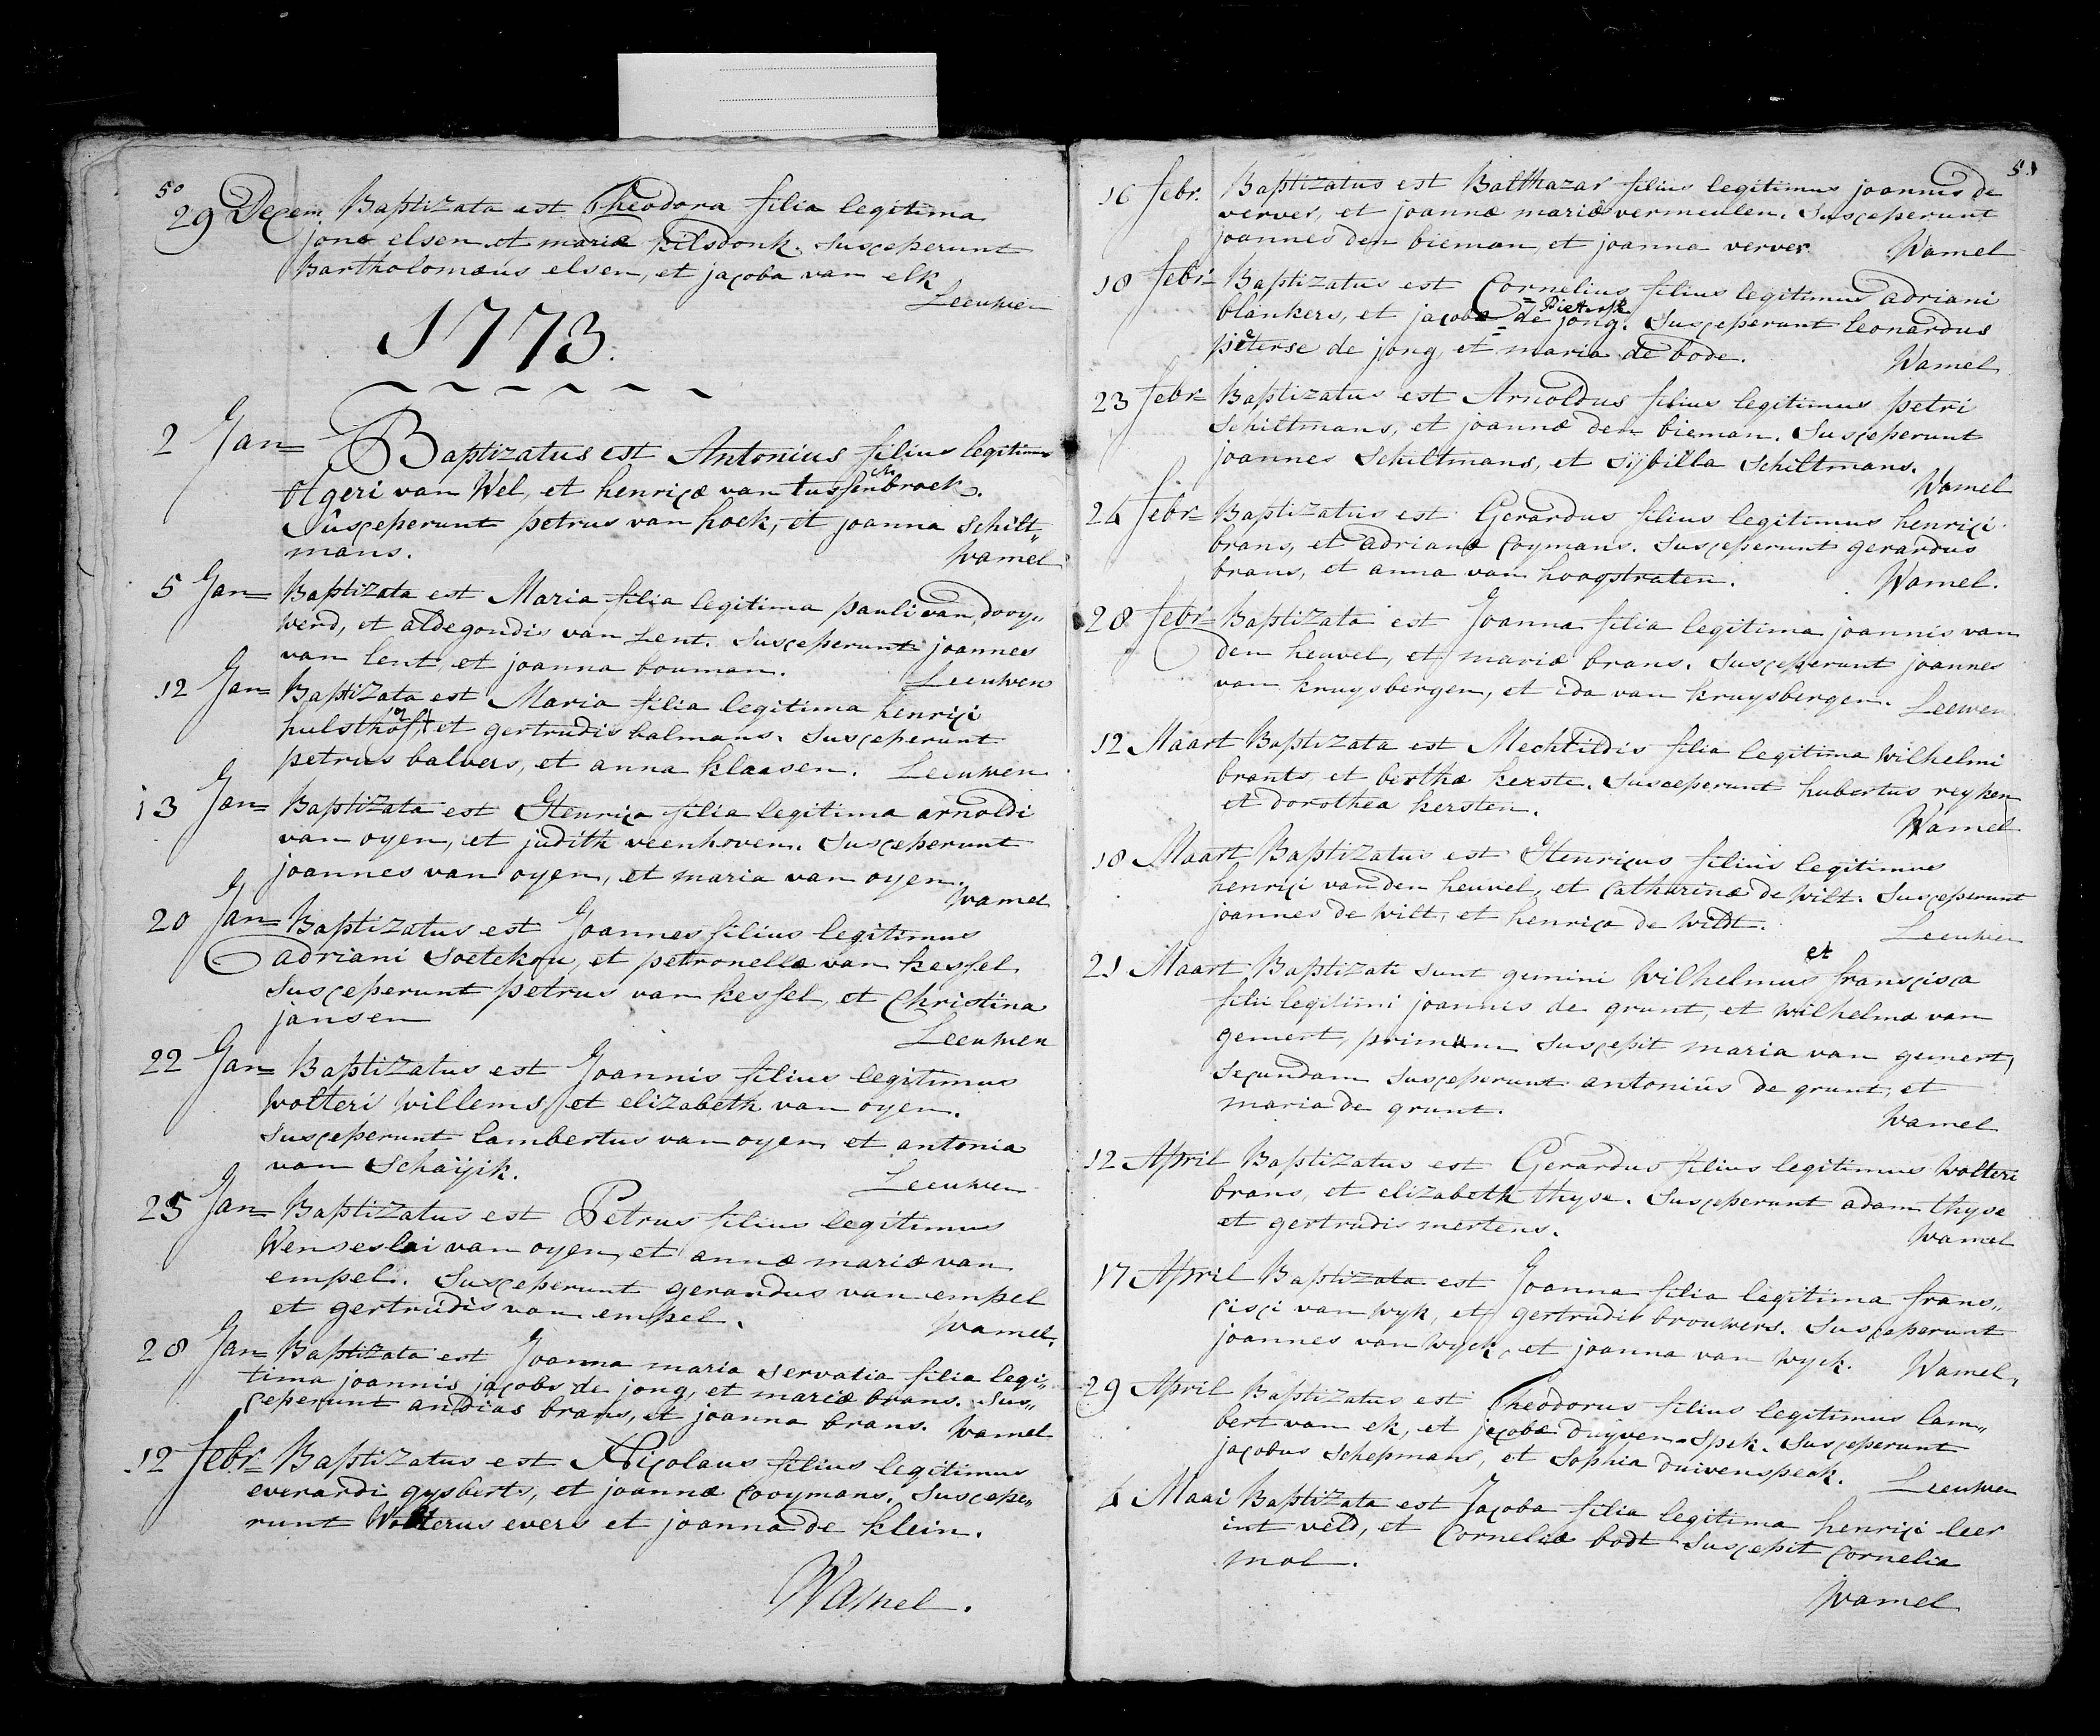 50
29 Decem. Baptizata est Theodora filia legitima
jona elsen et mariæ pilsdonk. Susceperunt
Bartholomæus elsen, et jacoba van elk
Leeuwen
1773.
2 Jan= Baptizatus est Antonius filius legitimus
Otgeri van Wel, et henricæ van tussenbroek.
Susceperunt petrus van hoek, et joanna Schilt„
mans. Wamel
5 Jan= Baptizata est Maria filia legitima pauli van dooy„
werd, et aldegondis van Lent. Susceperunt joannes
van lent et joanna bouman. Leeuwen
12 Jan= Baptizata est Maria filia legitima henrici
hulsthof, et gertrudis balmans. Susceperunt
petrus balvers, et anna klaasen. Leeuwen
13 Jan= Baptizata est Henrica filia legitima arnoldi
van oyen, et judith veenhoven. Susceperunt
joannes van oyen, et maria van oyen.
Wamel
20 Jan= Baptizatus est Joannes filius legitimus
adriani Soetekou, et petronella van kessel
Susceperunt petrus van kessel, et Christina
jansen Leeuwen
22 Jan= Baptizatus est Joannis filius legitimus
wolteri willems, et elizabeth van oyen.
Susceperunt lambertus van oyen et antonia
van Schaÿik. Leeuwen
25 Jan= Baptizatus est Petrus filius legitimus
Wenseslai van oyen, et annæ mariæ van
empel. Susceperunt gerardus van empel
et gertrudis van empel. Wamel.
28 Jan= Baptizata est Joanna maria servatia filia legi„
tima joannis jacobs de jong, et mariæ brans. Sus„
ceperunt andias brans, et joanna brans. Wamel
12 febr= Baptizatus est Nicolaus filius legitimus
everardi gysberts, et joannæ Cooymans. Suscepe„
runt Wolterus evers et joanna de klein.
Wamel.
51
16 febr. Baptizatus est Balthazar filius legitimus joannis de
verver, et joannæ mariæ vermeulen. Susceperunt
joannes den bieman, et joanna verver. Wamel
18 febr= Baptizatus est Cornelius filius legitimus adriani
blankers, et jacoba = Pieterse = de jong. Susceperunt leonardus
pieterse de jong, et maria de bode. Wamel
23 febr= Baptizatus est Arnoldus filius legitimus petri
Schiltmans, et joannæ den bieman. Susceperunt
joannes Schiltmans, et sÿbilla Schiltmans.
Wamel
24 febr= Baptizatus est Gerardus filius legitimus henrici
brans, et adrianæ Coymans. Susceperunt gerardus
brans, et anna van hoogstraten. Wamel.
28 febr= Baptizata est Joanna filia legitima joannis van
den heuvel, et mariæ brans. Susceperunt joannes
van kruysbergen, et ida van kruysbergen. Leewen
12 Maart Baptizata est Mechtildis filia legitima Wilhelmi
brants et berthæ kerste. Susceperunt hubertus reyken
et dorothea kersten. Wamel
18 Maart Baptizatus est Henricus filius legitimus
henrici van den heuvel, et Catharinæ de Wilt. Susceperunt
joannes de Wilt, et henrica de Wildt. Leeuwen
21 Maart Baptizati sunt gemini Wilhelmus et franscisca
filii legitimi joannis de grunt, et Wilhelma van
gemert, primum Suscepit maria van gemert,
Secundam Susceperunt antonius de grunt, et
maria de grunt. Wamel
12 April Baptizatus est Gerardus filius legitimus Wolteri
brans, et elizabeth thyse. Susceperunt adam thyse
et gertrudis mertens. Wamel
17 April Baptizata est Joanna filia legitima frans„
cisci van wyk, et gertrudis brouwers. Susceperunt
joannes van Wyck, et joanna van Wyck. Wamel.
29 April Baptizatus est Theodorus filius legitimus lam„
bert van ek, et jacoba duyven=Spek. Susceperunt
jacobus Schepmans, et Sophia duivenspeck. Leeuwen
4 Maai Baptizata est Jacoba filia legitima henrici leer
int veld, et Corneliæ bodt Suscepit Cornelia
mol.
Wamel